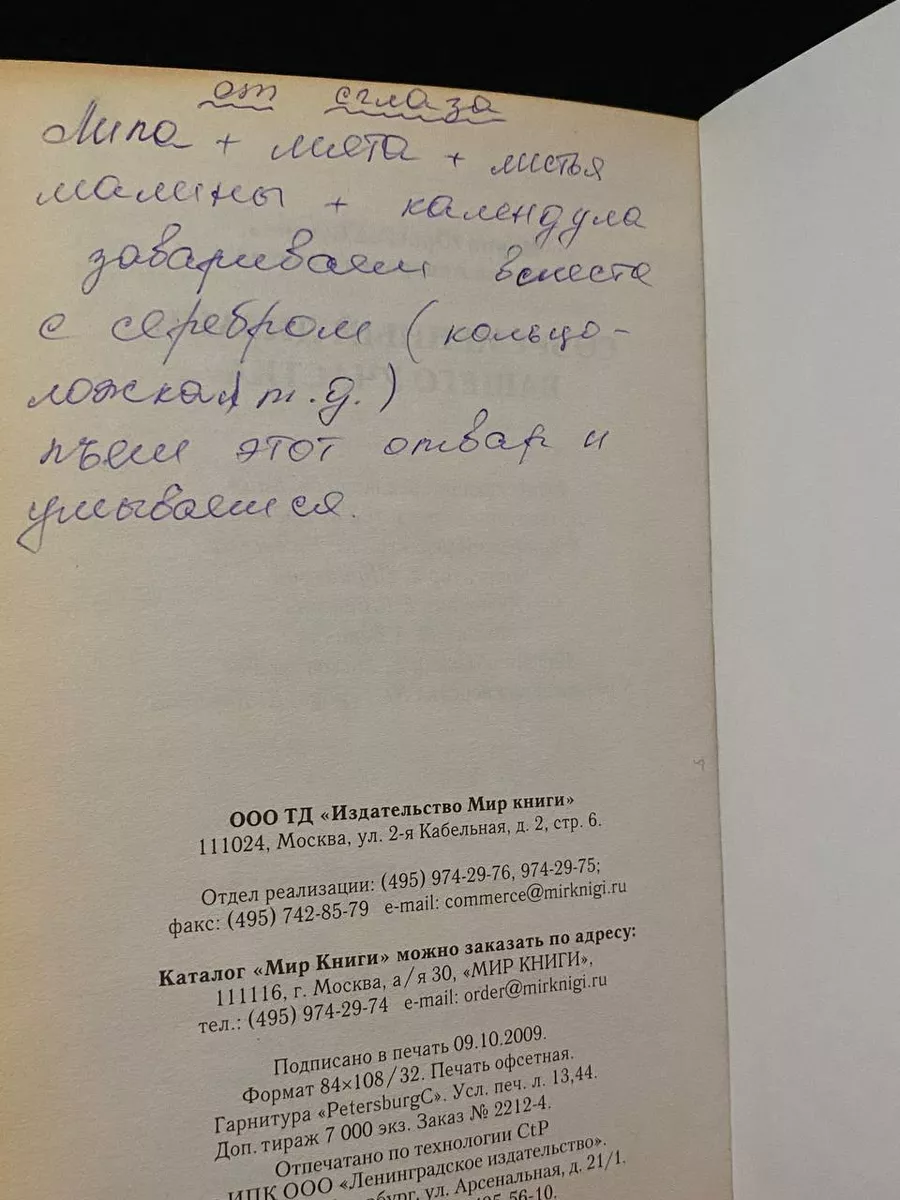 от сглаза
Липа + мята + листья
малины + календула
завариваем вместе
с серебром (кольцо-
ложка и т.д.)
пьем этот отвар и
умываемся.
ООО ТД «Издательство Мир книги»
111024, Москва, ул. 2-я Кабельная, д. 2, стр. 6.
Отдел реализации: (495) 974-29-76, 974-29-75;
факс: (495) 742-85-79 e-mail: commerce@mirknigi.ru
Каталог «Мир Книги» можно заказать по адресу:
111116, г. Москва, а/я 30, «МИР КНИГИ»,
тел.: (495) 974-29-74 e-mail: order@mirknigi.ru
Подписано в печать 09.10.2009.
Формат 84×108/32. Печать офсетная.
Гарнитура «PetersburgC». Усл. печ. л. 13,44.
Доп. тираж 7 000 экз. Заказ № 2212-4.
Отпечатано по технологии CtP
ИПК ООО «Ленинградское издательство».
ул. Арсенальная, д. 21/1.